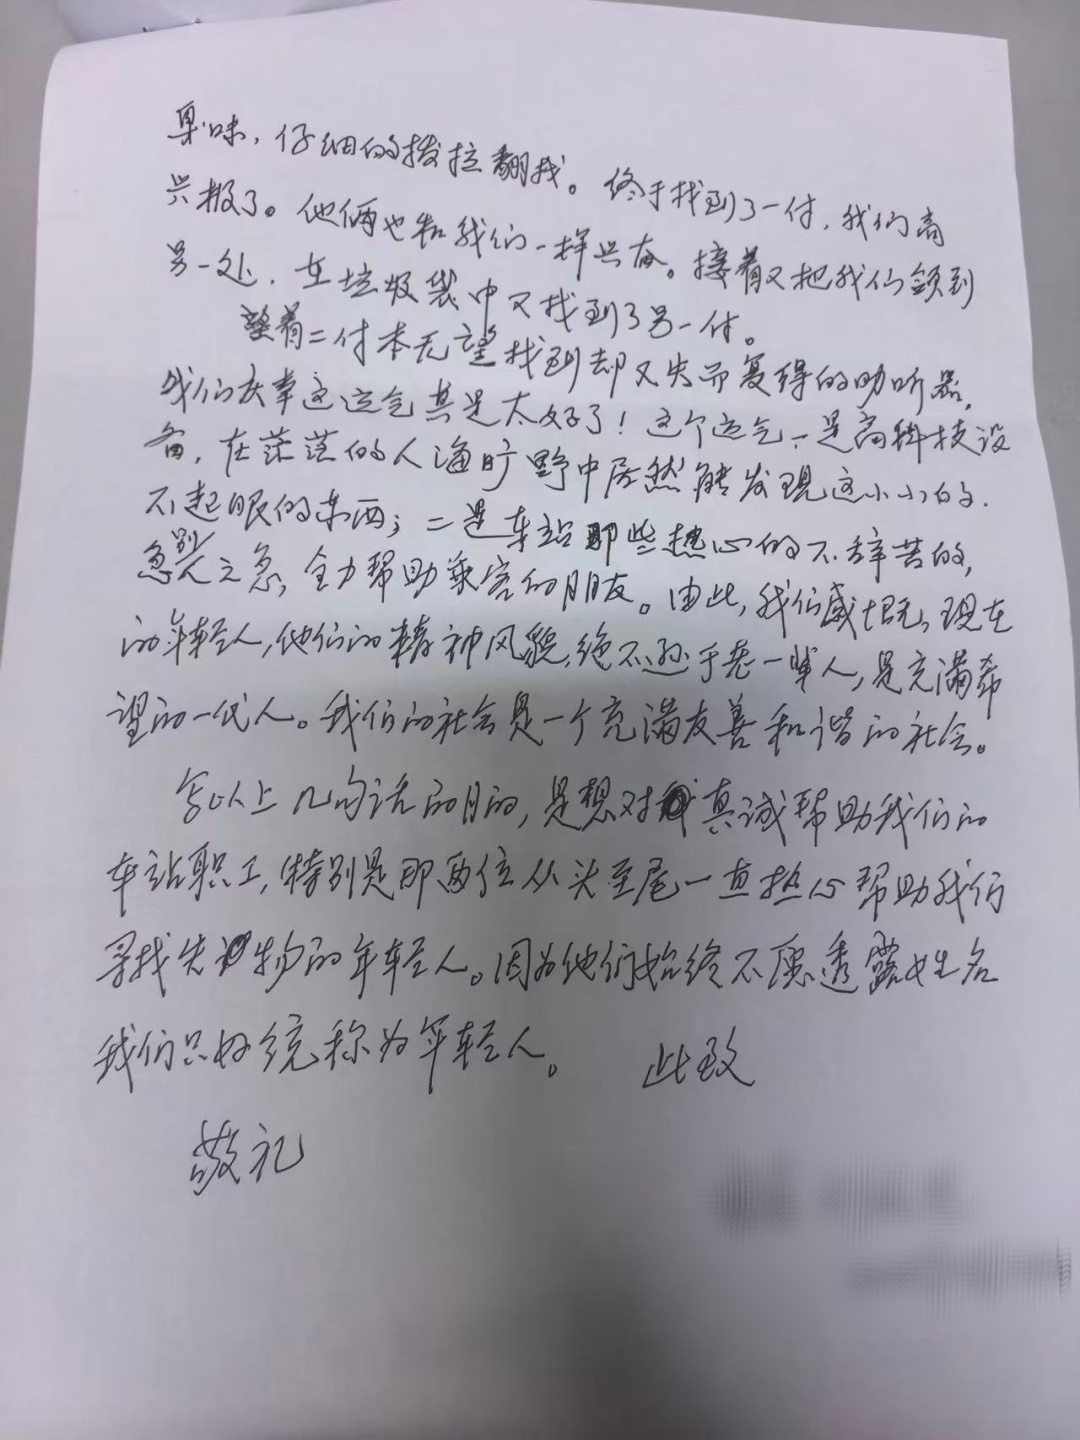 臭味，仔细的拨拉翻找。终于找到了一付，我们高
兴极了。他俩也和我们一样兴奋。接着又把我们领到
另一处，在垃圾袋中又找到了另一付。
望着二付本无望找到却又失而复得的助听器，
我们庆幸这运气真是太好了！这个运气，一是高科技设
备，在茫茫的人海旷野中居然能发现这小小的，
不起眼的东西；二是车站那些热心的不辞苦的，
急别人之急，全力帮助乘客的朋友。由此，我们感慨，现在
的年轻人，他们的精神风貌，绝不逊于老一辈人，是充满希
望的一代人。我们的社会是一个充满友善和谐的社会。
写以上几句话的目的，是想对真诚帮助我们的
车站职工，特别是那两位从头至尾一直热心帮助我们
寻找失物的年轻人。因为他们始终不愿透露姓名
我们只好统称为年轻人。 此致
敬礼